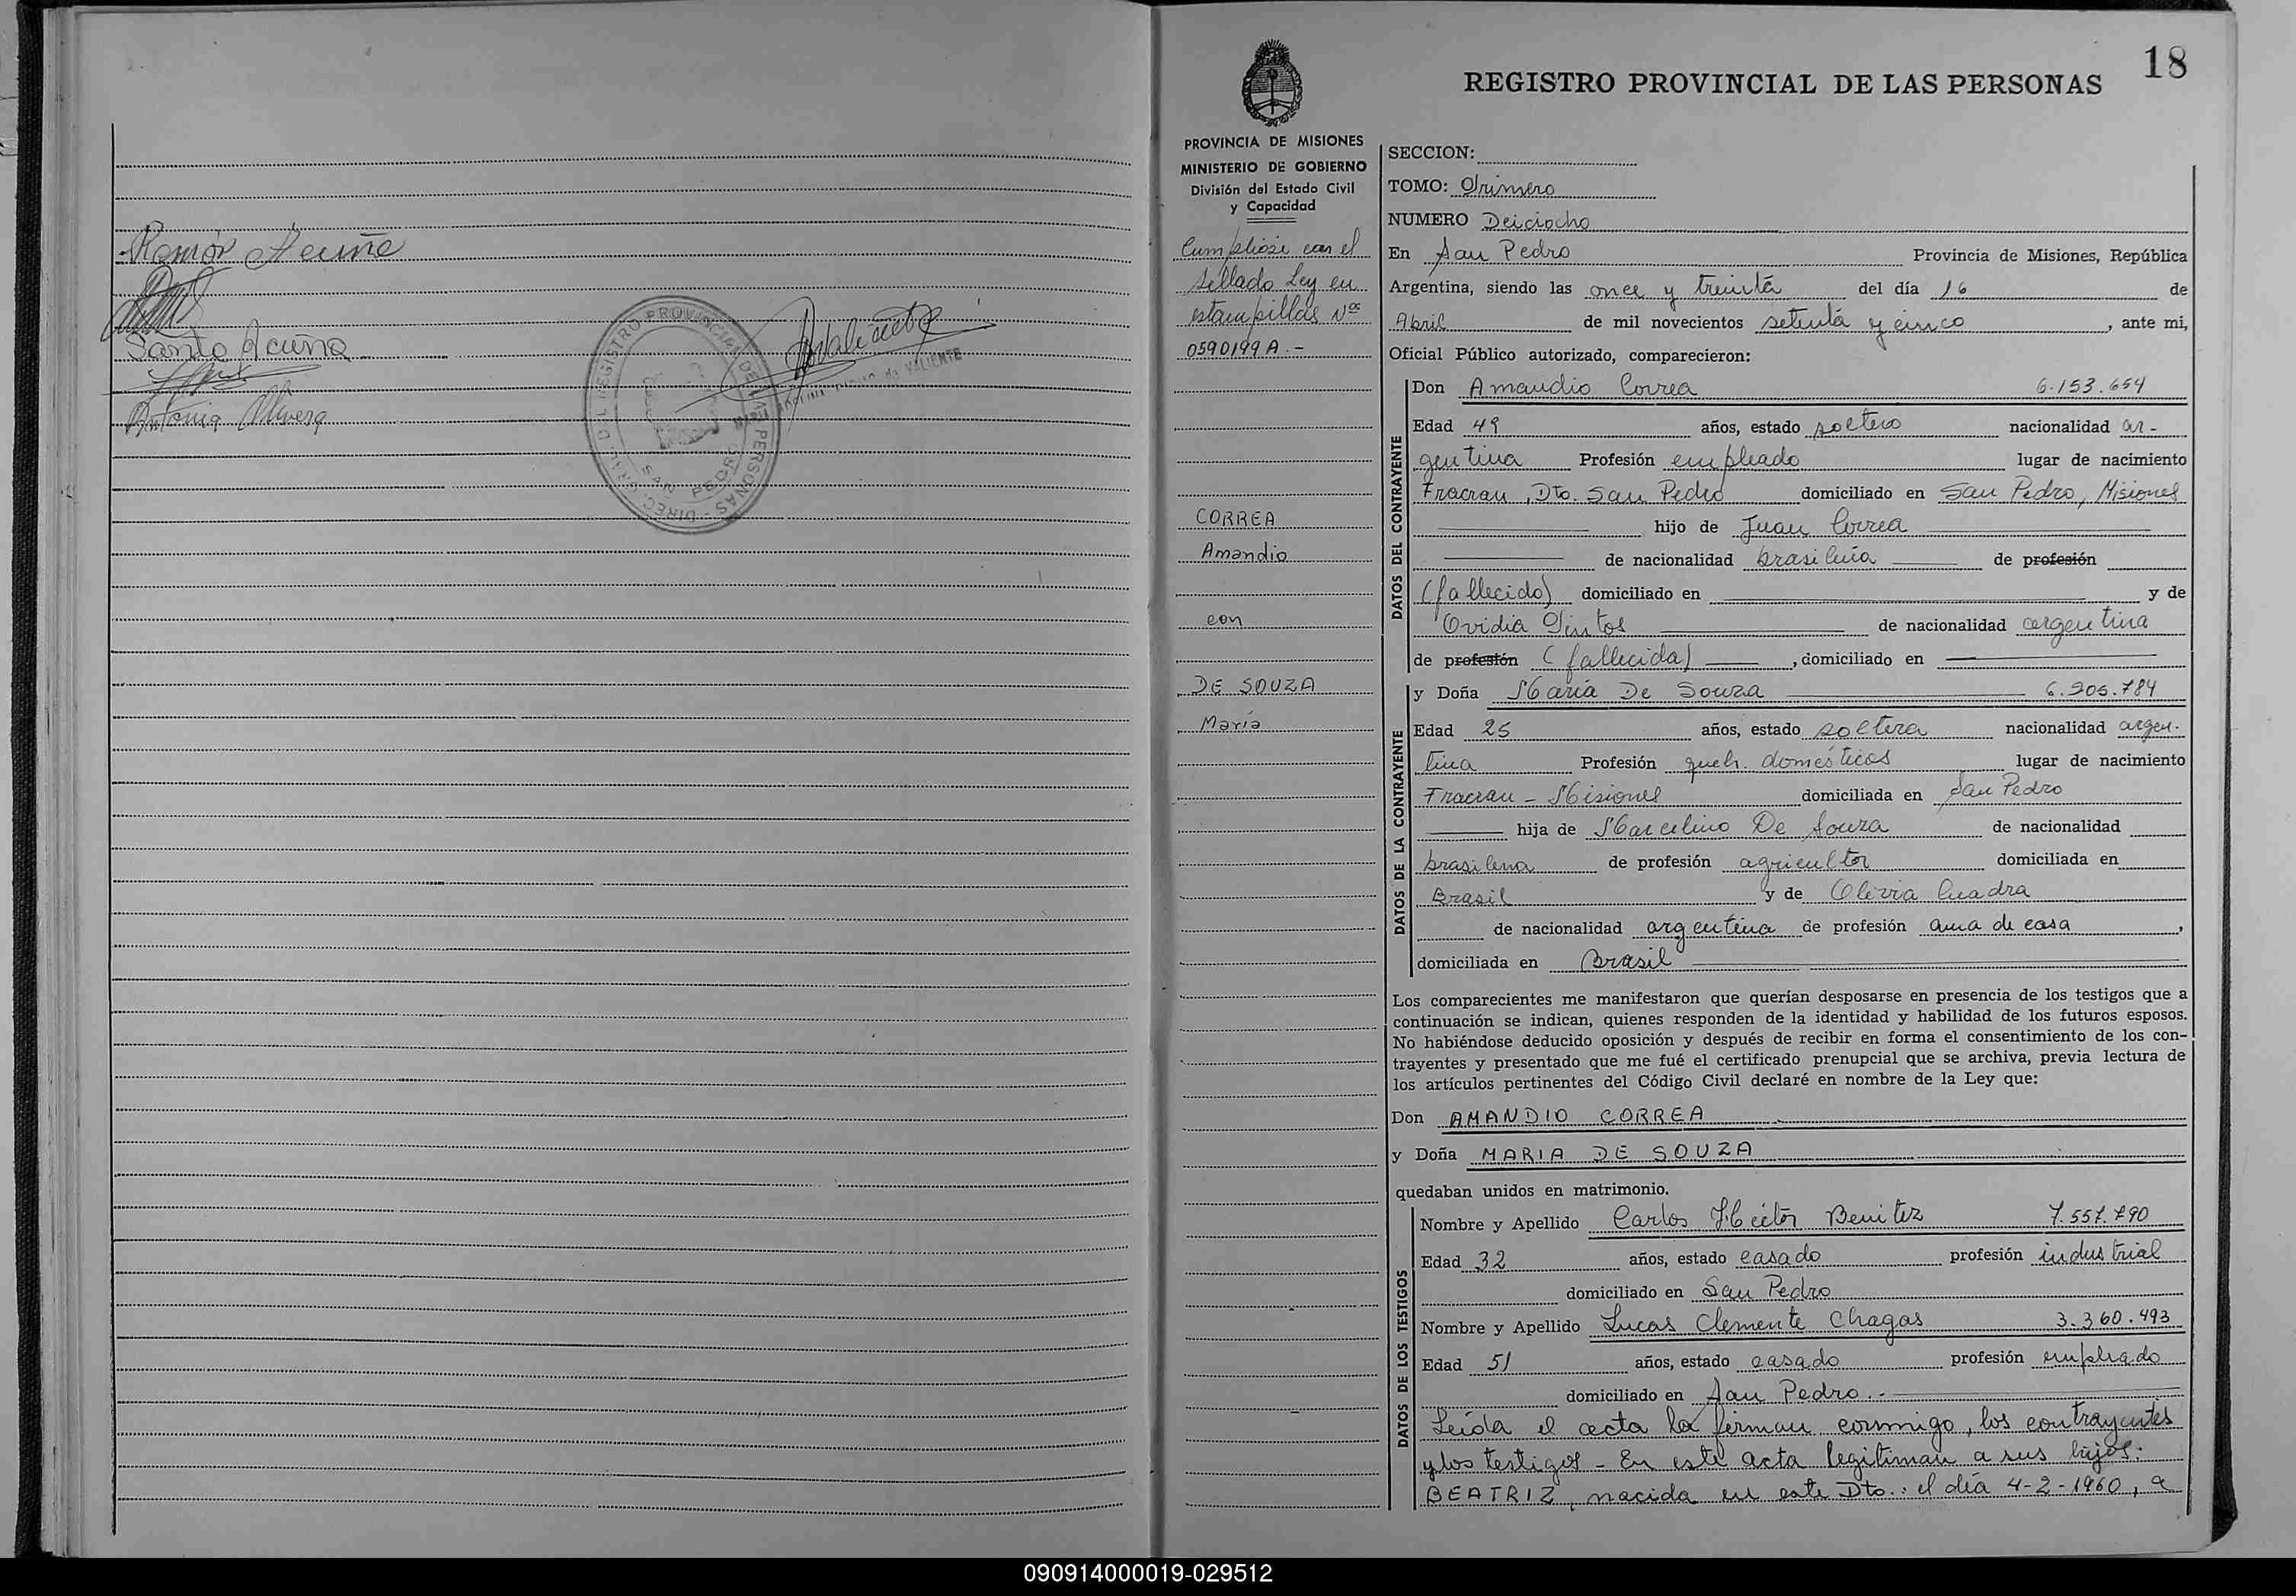 Ramón Acuña
Santo Acuña
Antonia Olivera
DIREC. GRAL. DEL REGISTRO PROVINCIAL DE LAS PERSONAS
SAN PEDRO
de VALIENTE
18
REGISTRO PROVINCIAL DE LAS PERSONAS
PROVINCIA DE MISIONES
MINISTERIO DE GOBIERNO
División del Estado Civil
y Capacidad
Cumplióse con el
sellado Ley en
estampillas Nos
0590199 A.-
CORREA
Amandio
con
DE SOUZA
María
SECCION:
TOMO: Primero
NUMERO Deiciocho
En San Pedro Provincia de Misiones, República
Argentina, siendo las once y treinta del día 16 de
Abril de mil novecientos setenta y cinco, ante mi,
Oficial Público autorizado, comparecieron:
DATOS DEL CONTRAYENTE
Don Amandio Correa 6.153.654
Edad 49 años, estado soltero nacionalidad ar-
gentina Profesión empleado lugar de nacimiento
Fracran, Dto. San Pedro domiciliado en San Pedro, Misiones
hijo de Juan Correa
de nacionalidad brasileña de profesión
(fallecido) domiciliado en y de
Ovidia Pintos de nacionalidad argentina
de profesión (fallecida), domiciliado en
DATOS DE LA CONTRAYENTE
y Doña María De Souza 6.205.784
Edad 25 años, estado soltera nacionalidad argen-
tina Profesión queh. domésticos lugar de nacimiento
Fracran - Misiones domiciliada en San Pedro
hija de Marcelino De Souza de nacionalidad
brasilena de profesión agricultor domiciliada en
Brasil y de Olivia Cuadra
de nacionalidad argentina de profesión ama de casa,
domiciliada en Brasil
Los comparecientes me manifestaron que querían desposarse en presencia de los testigos que a
continuación se indican, quienes responden de la identidad y habilidad de los futuros esposos.
No habiéndose deducido oposición y después de recibir en forma el consentimiento de los con-
trayentes y presentado que me fué el certificado prenupcial que se archiva, previa lectura de
los artículos pertinentes del Código Civil declaré en nombre de la Ley que:
Don AMANDIO CORREA
y Doña MARIA DE SOUZA
quedaban unidos en matrimonio.
DATOS DE LOS TESTIGOS
Nombre y Apellido Carlos Héctor Benitez 7.557.790
Edad 32 años, estado casado profesión industrial
domiciliado en San Pedro
Nombre y Apellido Lucas Clemente Chagas 3.360.493
Edad 51 años, estado casado profesión empleado
domiciliado en San Pedro.-
Leída el acta la firman conmigo, los contrayentes
y los testigos - En este acta legitiman a sus hijos:
BEATRIZ, nacida en este Dto.: el día 4-2-1960, a
090914000019-029512